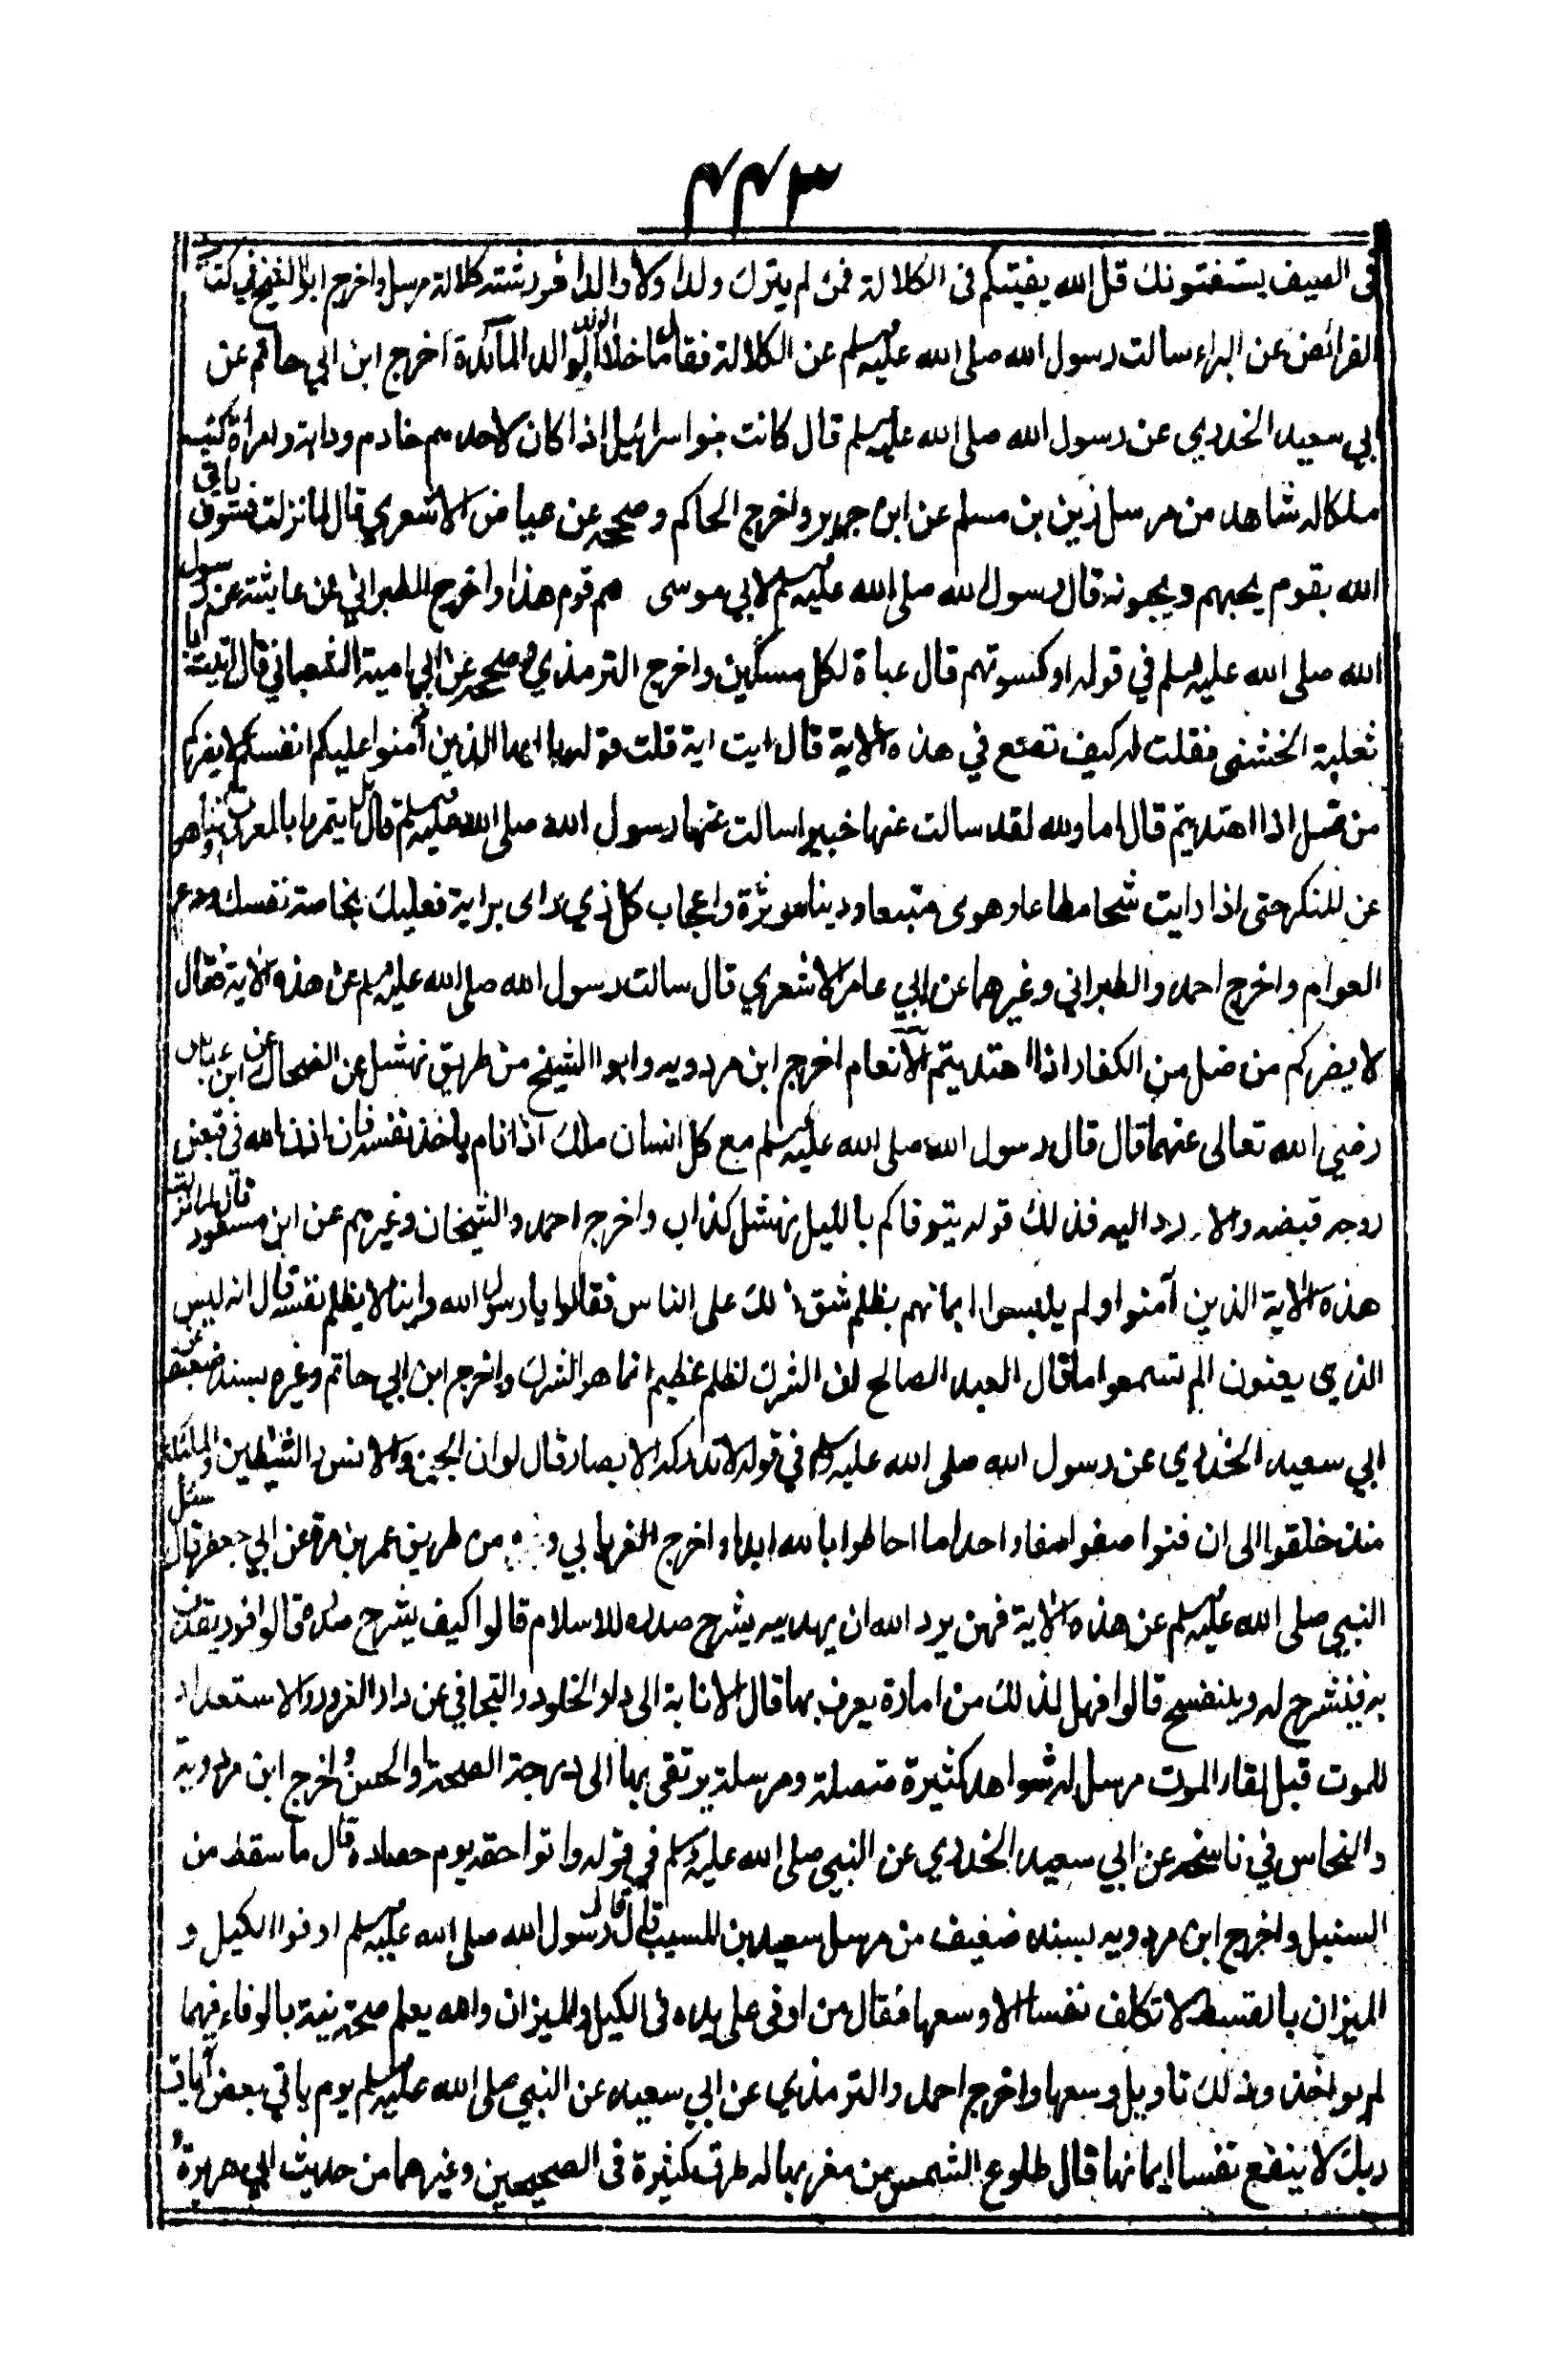 ٤٤٣
في الصيف يستفتونك قل الله يفتيكم في الكلالة فمن لم يترك ولدا ولا والدا فورثته كلالة مرسل واخرج ابوا الشيخ في كتاب
الفرائض عن البراء سالت رسول الله صلى الله عليه وسلم عن الكلالة فقال ما خلا الولد والوالد المائدة اخرج ابن ابي حاتم عن
ابي سعيد الخدري عن رسول الله صلى الله عليه وسلم قال كانت بنوا سرائيل اذا كان لاحدهم خادم ودابة وامراة كتب
ملكا له شاهد من مرسل زين بن مسلم عن ابن جرير واخرج الحاكم وصححه عن عياض الاشعري قال لما نزلت فسوف ياتي
الله بقوم يحبهم ويحبونه قال رسول الله صلى الله عليه وسلم لابي موسى هم قوم هذا واخرج الطبراني عن عايشة عن رسول
الله صلى الله عليه وسلم في قوله او كسوتهم قال عباة لكل مسكين واخرج الترمذي وصححه عن ابي امية الشعباني قال اتيت ابا
ثعلبة الخشنى فقلت له كيف تصنع في هذه الاية قال ايت اية قلت قوله يا ايها الذين آمنوا عليكم انفسكم لا يضركم
من ضل اذا اهتديتم قال اما والله لقد سالت عنها خبيرا سالت عنها رسول الله صلى الله عليه وسلم قال بل ايتمروا بالمعروف وتناهوا
عن المنكر حتى اذا رايت شحا مطاعا وهوى متبعا ودينا موثرة واعجاب كل ذي راى برايه فعليك بخاصة نفسك ودع
العوام واخرج احمد والطبراني وغيرهما عن ابي عامر الاشعري قال سالت رسول الله صلى الله عليه وسلم عن هذه الاية فقال
لا يضركم من ضل من الكفار اذا اهتديتم الانعام اخرج ابن مردويه وابوا الشيخ من طريق نهشل عن الضحاك عن ابن عباس
رضي الله تعالى عنهما قال قال رسول الله صلى الله عليه وسلم مع كل انسان ملك اذا نام ياخذ نفسه فان اذن الله في قبض
روحه قبضه والا رد اليه فذلك قوله يتوفاكم بالليل نهشل كذاب واخرج احمد والشيخان وغيرهم عن ابن مسعود قال لما نزلت
هذه الاية الذين آمنوا ولم يلبسوا ايمانهم بظلم شق ذلك على الناس فقالوا يا رسول الله واينا لا يظلم نفسه قال انه ليس
الذي يعنون الم تسمعوا ما قال العبد الصالح ان الشرك لظلم عظيم انما هو الشرك واخرج ابن ابي حاتم وغيره بسند ضعيف عن
ابي سعيد الخدري عن رسول الله صلى الله عليه وسلم في قوله لا تدركه الابصار قال لو ان الجن والانس والشيطين والملئكة
منذ خلقوا الى ان فنوا صفوا صفا واحدا ما احاطوا بالله ابدا واخرج الفريابي و من طريق عمر بن مرة عن ابي جعفر قال سئل
النبي صلى الله عليه وسلم عن هذه الاية فمن يرد الله ان يهديه يشرح صدره للاسلام قالوا كيف يشرح صدره قالوا نور يقذف
به فينشرح له وينفسح قالوا فهل لذلك من امارة يعرف بها قال الانابة الى دار الخلود والتجافي عن دار الغرور والاستعداد
للموت قبل لقاء الموت مرسل له شواهد كثيرة متصلة ومرسلة يرتقى بها الى درجة الصحة او الحسن واخرج ابن مردويه
والنحاس في ناسخه عن ابي سعيد الخدري عن النبي صلى الله عليه وسلم في قوله واتوا حقه يوم حصاده قال ما سقط من
السنبل واخرج ابن مردويه بسند ضعيف من مرسل سعيد بن المسيب قال قال رسول الله صلى الله عليه وسلم اوفوا الكيل و
الميزان بالقسط لا تكلف نفسا الا وسعها فقال من اوفى على يده فى الكيل والميزان والله يعلم صحة نيته بالوفاء فيهما
لم يواخذ وذلك تاويل وسعها واخرج احمد والترمذي عن ابي سعيد عن النبي صلى الله عليه وسلم يوم ياتي بعض آيات
ربك لا ينفع نفسا ايمانها قال طلوع الشمس من مغربها له طرق كثيرة فى الصحيحين وغيرهما من حديث ابي هريرة